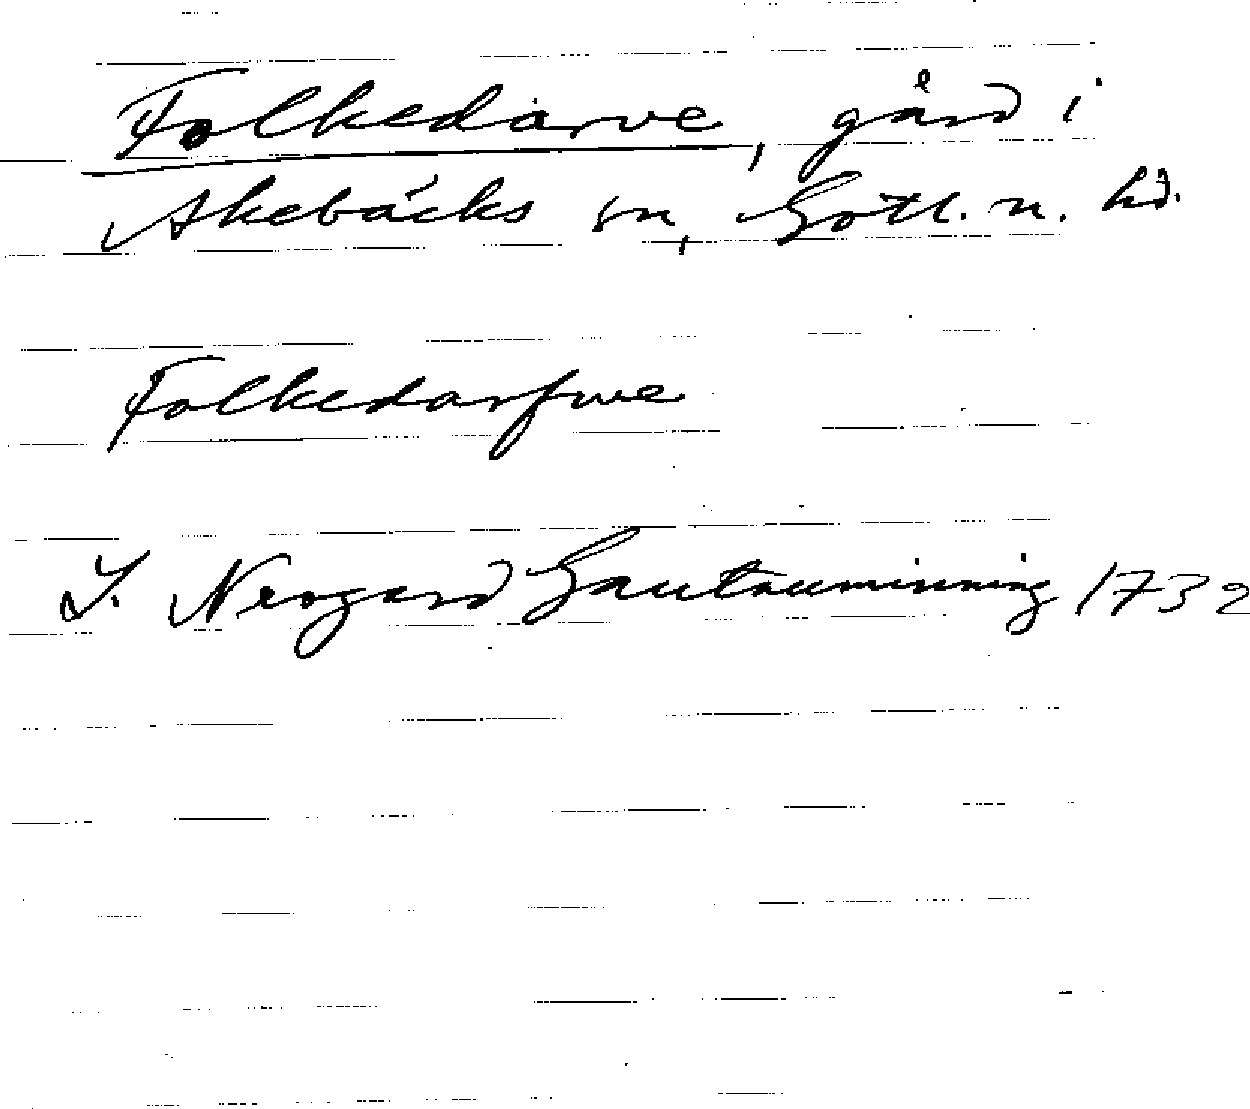 Folkedarve, gård i
Akebäcks sn, Gotl. n. hd.
Folkedarfwe
J. Neogard Gautauminning 1732